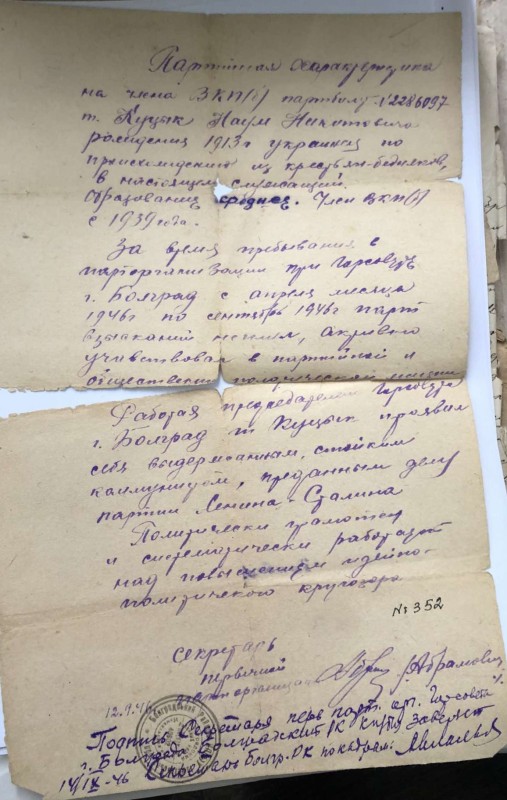 Партийная характеристика
на члена ВКП(б) партбилет №2286097
т. Куцык Наум
рождения 1913г украинец по
происхождению из крестьян-бедняков,
в настоящем служащий.
образование среднее. Член ВКП(б)
с 1939 года.
За время пребывания в
парторганизации при Горсовете
г. Болград с апреля месяца
1946г по сентябрь 1946г парт
взысканий не имел, активно
участвовал в партийной и
общественно политической жизни
Работая председателем Горсовета
г. Болград т Куцык проявил
себя выдержанным, стойким
коммунистом, преданным делу
партии Ленина-Сталина
Политически грамотен
и систематически работает
над повышением идейно-
политического кругозора.
№ 352
Секретарь
первичной
парторганизации Абрамович
12.9.46
Подпись Секретаря перв парт. орг. Горсовета
г. Болграда Болградский РК КП(б)У Заверяет
14/IX-46 Секретарь Болгр. РК по кадрам: